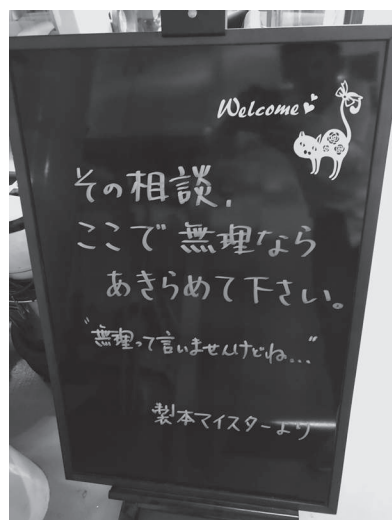 Welcome
その相談,
ここで無理なら
あきらめて下さい。
"無理って言いませんけどね..."
製本マイスターより